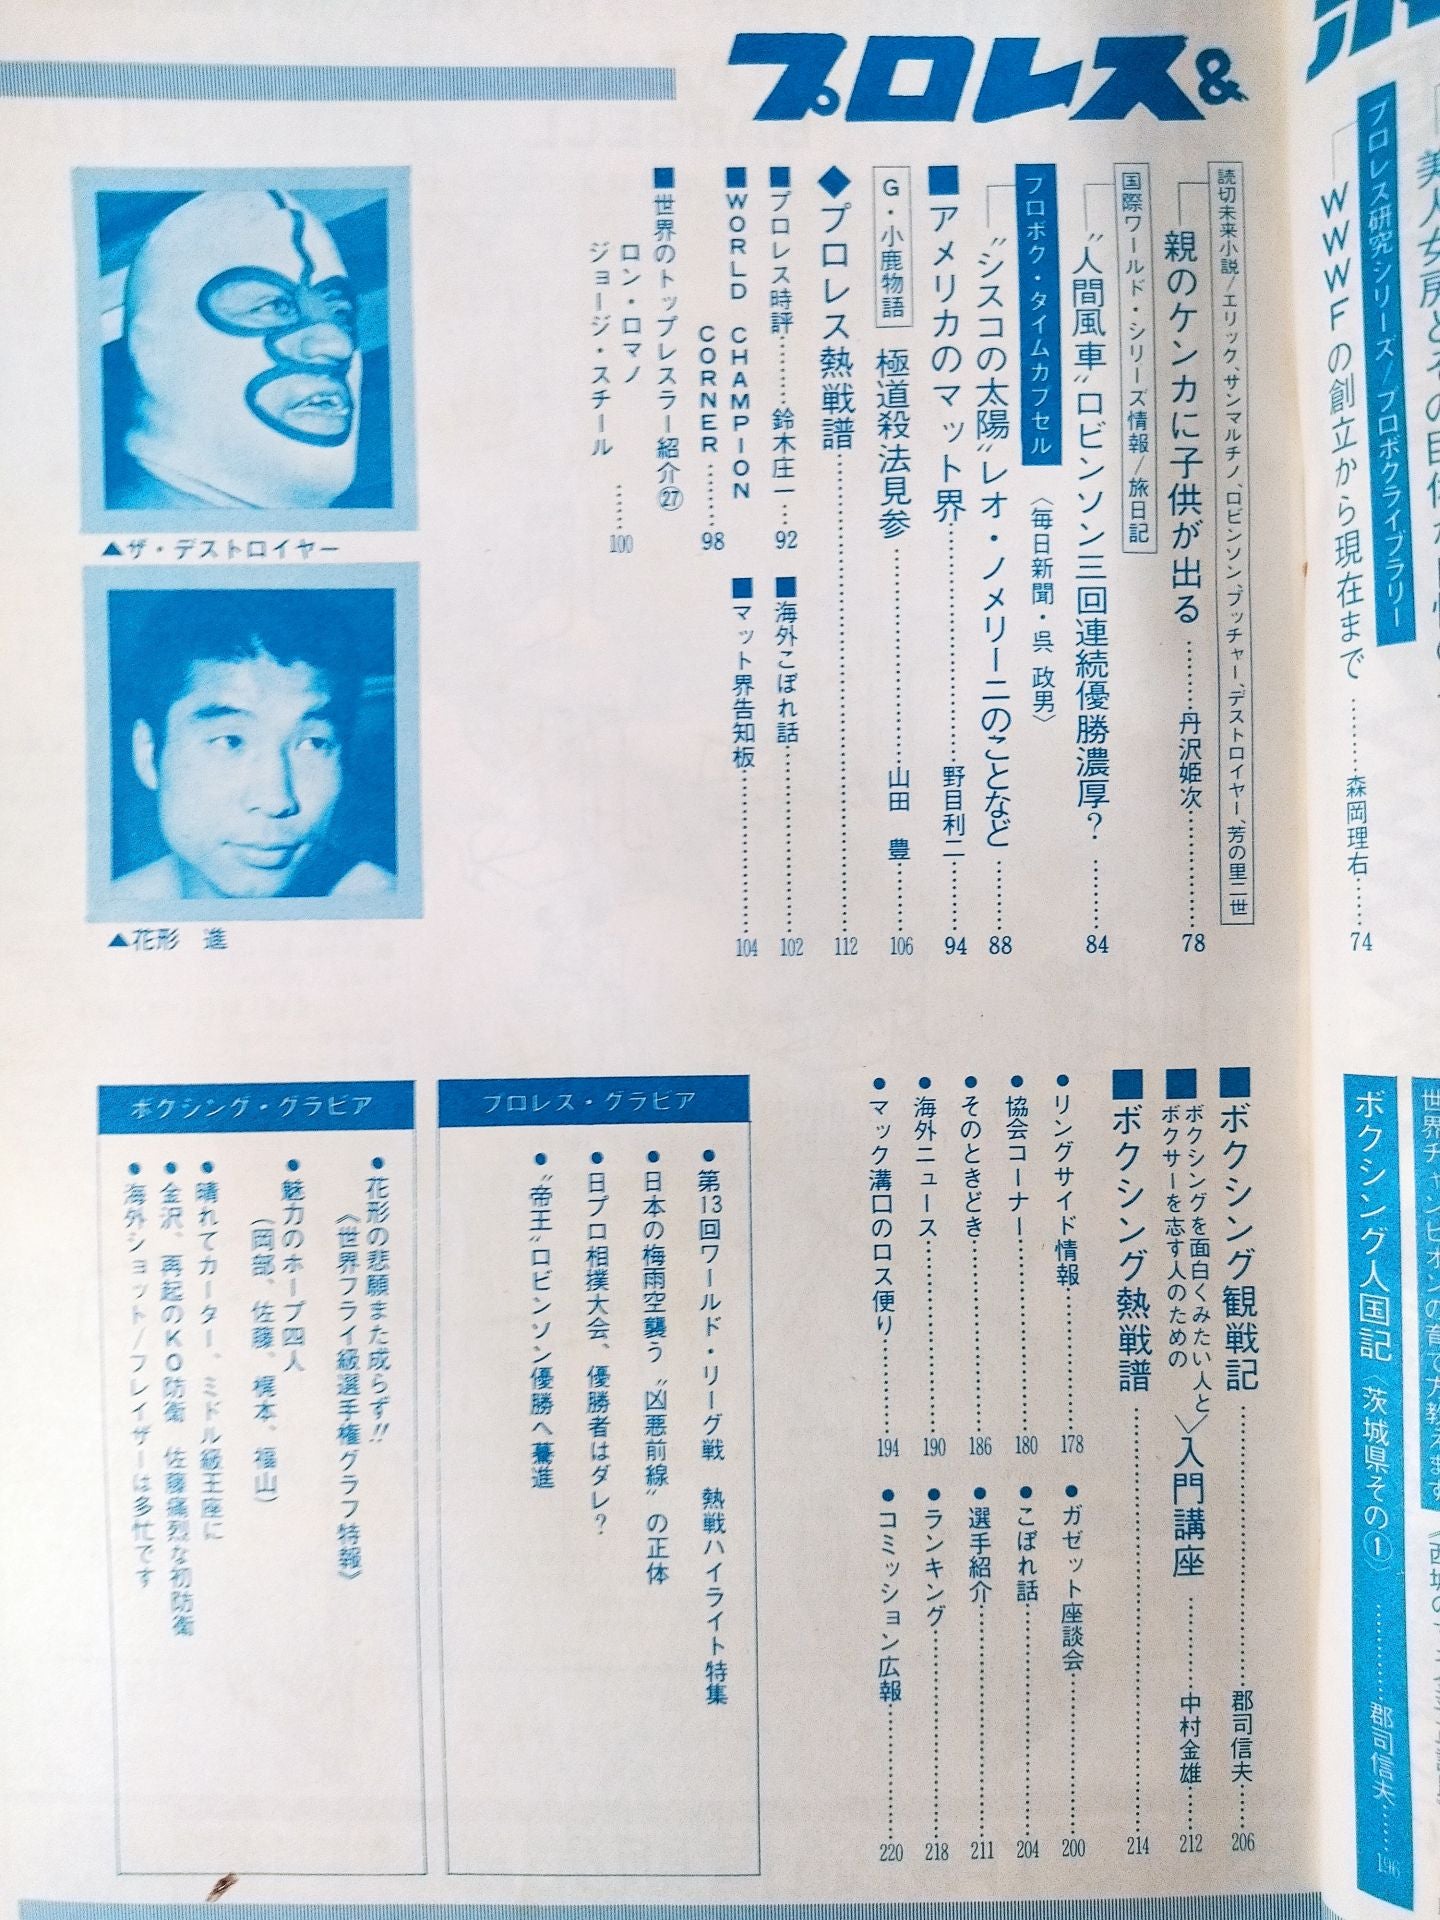 プロレス&
プロレス研究シリーズ/プロボクライブラリー
WWWFの創立から現在まで………森岡理右……74
読切未来小説/エリック、サンマルチノ、ロビンソン、ブッチャー、デストロイヤー、芳の里二世
親のケンカに子供が出る………丹沢姫次………78
国際ワールド・シリーズ情報/旅日記
〝人間風車〟ロビンソン三回連続優勝濃厚?………84
プロボク・タイムカプセル
〈毎日新聞・呉 政男〉
〝シスコの太陽〟レオ・ノメリーニのことなど………88
■アメリカのマット界………野目利二……94
G・小鹿物語
極道殺法見参………山田 豊……106
◆プロレス熱戦譜………112
■プロレス時評………鈴木庄一…92
■海外こぼれ話………102
■WORLD CHAMPION
CORNER………98
■マット界告知板………104
■世界のトップレスラー紹介㉗
ロン・ロマノ
ジョージ・スチール………100
▲ザ・デストロイヤー
▲花形 進
ボクシング人国記〈茨城県その①〉………郡司信夫……196
■ボクシング観戦記………郡司信夫……206
■ボクシングを面白くみたい人と
ボクサーを志す人のための
入門講座………中村金雄……212
■ボクシング熱戦譜………214
●リングサイド情報………178
●ガゼット座談会………200
●協会コーナー………180
●こぼれ話………204
●そのときどき………186
●選手紹介………211
●海外ニュース………190
●ランキング………218
●マック溝口のロス便り………194
●コミッション広報………220
プロレス・グラビア
●第13回ワールド・リーグ戦 熱戦ハイライト特集
●日本の梅雨空襲う〝凶悪前線〟の正体
●日プロ相撲大会、優勝者はダレ?
●〝帝王〟ロビンソン優勝へ驀進
ボクシング・グラビア
●花形の悲願また成らず!!
《世界フライ級選手権グラフ特報》
●魅力のホープ四人
(岡部、佐藤、梶本、福山)
●晴れてカーター、ミドル級王座に
●金沢、再起のKO防衛 佐藤痛烈な初防衛
●海外ショット/フレイザーは多忙です